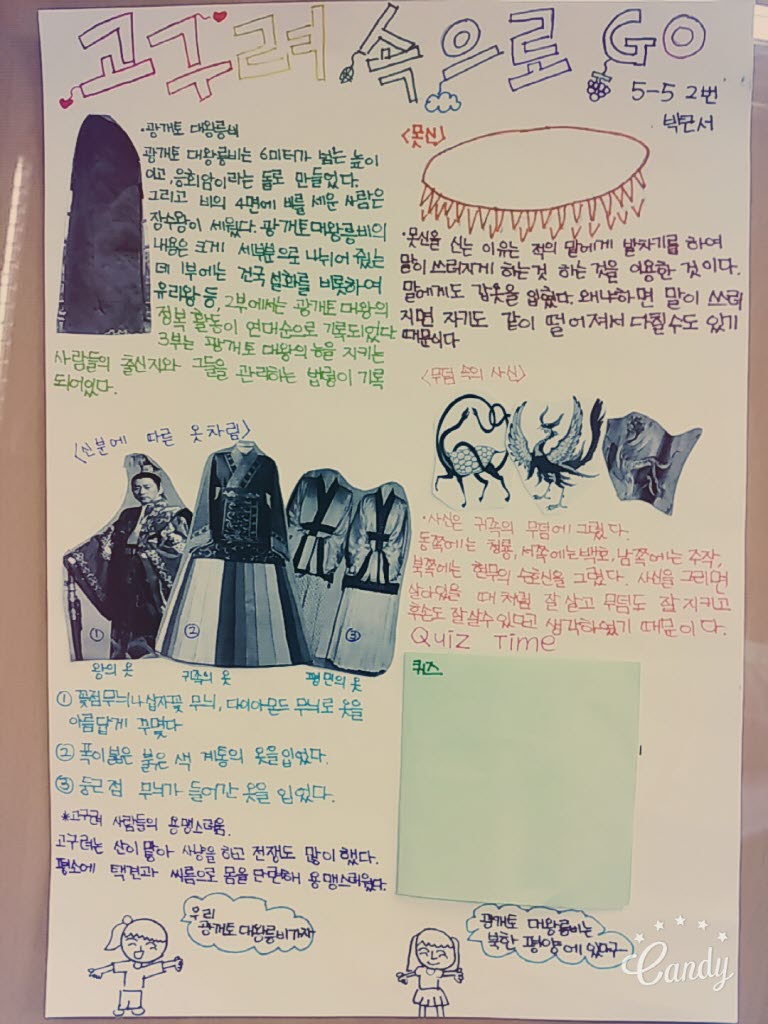 고구려 속으로 GO
5-5 2번
박문서
·광개토 대왕릉비
광개토 대왕릉비는 6미터가 넘는 높이
이고, 응회암이라는 돌로 만들었다.
그리고 비의 4면에 비를 세운 사람은
장수왕이 세웠다. 광개토대왕릉비의
내용은 크게 세부분으로 나뉘어 졌는
데 1부에는 건국 설화를 비롯하여
유리왕 등, 2부에서는 광개토 대왕의
정복 활동이 연대순으로 기록되었다
3부는 광개토 대왕의 능을 지키는
사람들의 출신지와 그들을 관리하는 법령이 기록
되어있다.
<못신>
·못신을 신는 이유는 적의 말에게 발차기를 하여
말이 쓰러지게 하는것 하는 것을 이용한 것이다.
말에게도 갑옷을 입혔다. 왜냐하면 말이 쓰러
지면 자기도 같이 떨어져서 다칠수도 있기
때문이다
<무덤 속의 사신>
·사신은 귀족의 무덤에 그렸다.
동쪽에는 청룡, 서쪽에는 백호, 남쪽에는 주작,
북쪽에는 현무의 수호신을 그렸다. 사신을 그리면
살아있을 때 처럼 잘 살고 무덤도 잘 지키고
후손도 잘 살수 있다고 생각하였기 때문이다.
<신분에 따른 옷차림>
①
②
③
왕의 옷
귀족의 옷
평민의 옷
① 꽃점무늬나 십자꽃 무늬, 다이아몬드 무늬로 옷을
아름답게 꾸몄다
② 폭이 붉은 붉은 색 계통의 옷을 입었다.
③ 둥근 점 무늬가 들어간 옷을 입었다.
*고구려 사람들의 용맹스러움.
고구려는 산이 많아 사냥을 하고 전쟁도 많이 했다.
평소에 택견과 씨름으로 몸을 단련해 용맹스러웠다.
Quiz Time
퀴즈
우리
광개토 대왕릉비가자
광개토 대왕릉비는
북한 평양에 있다구
Candy